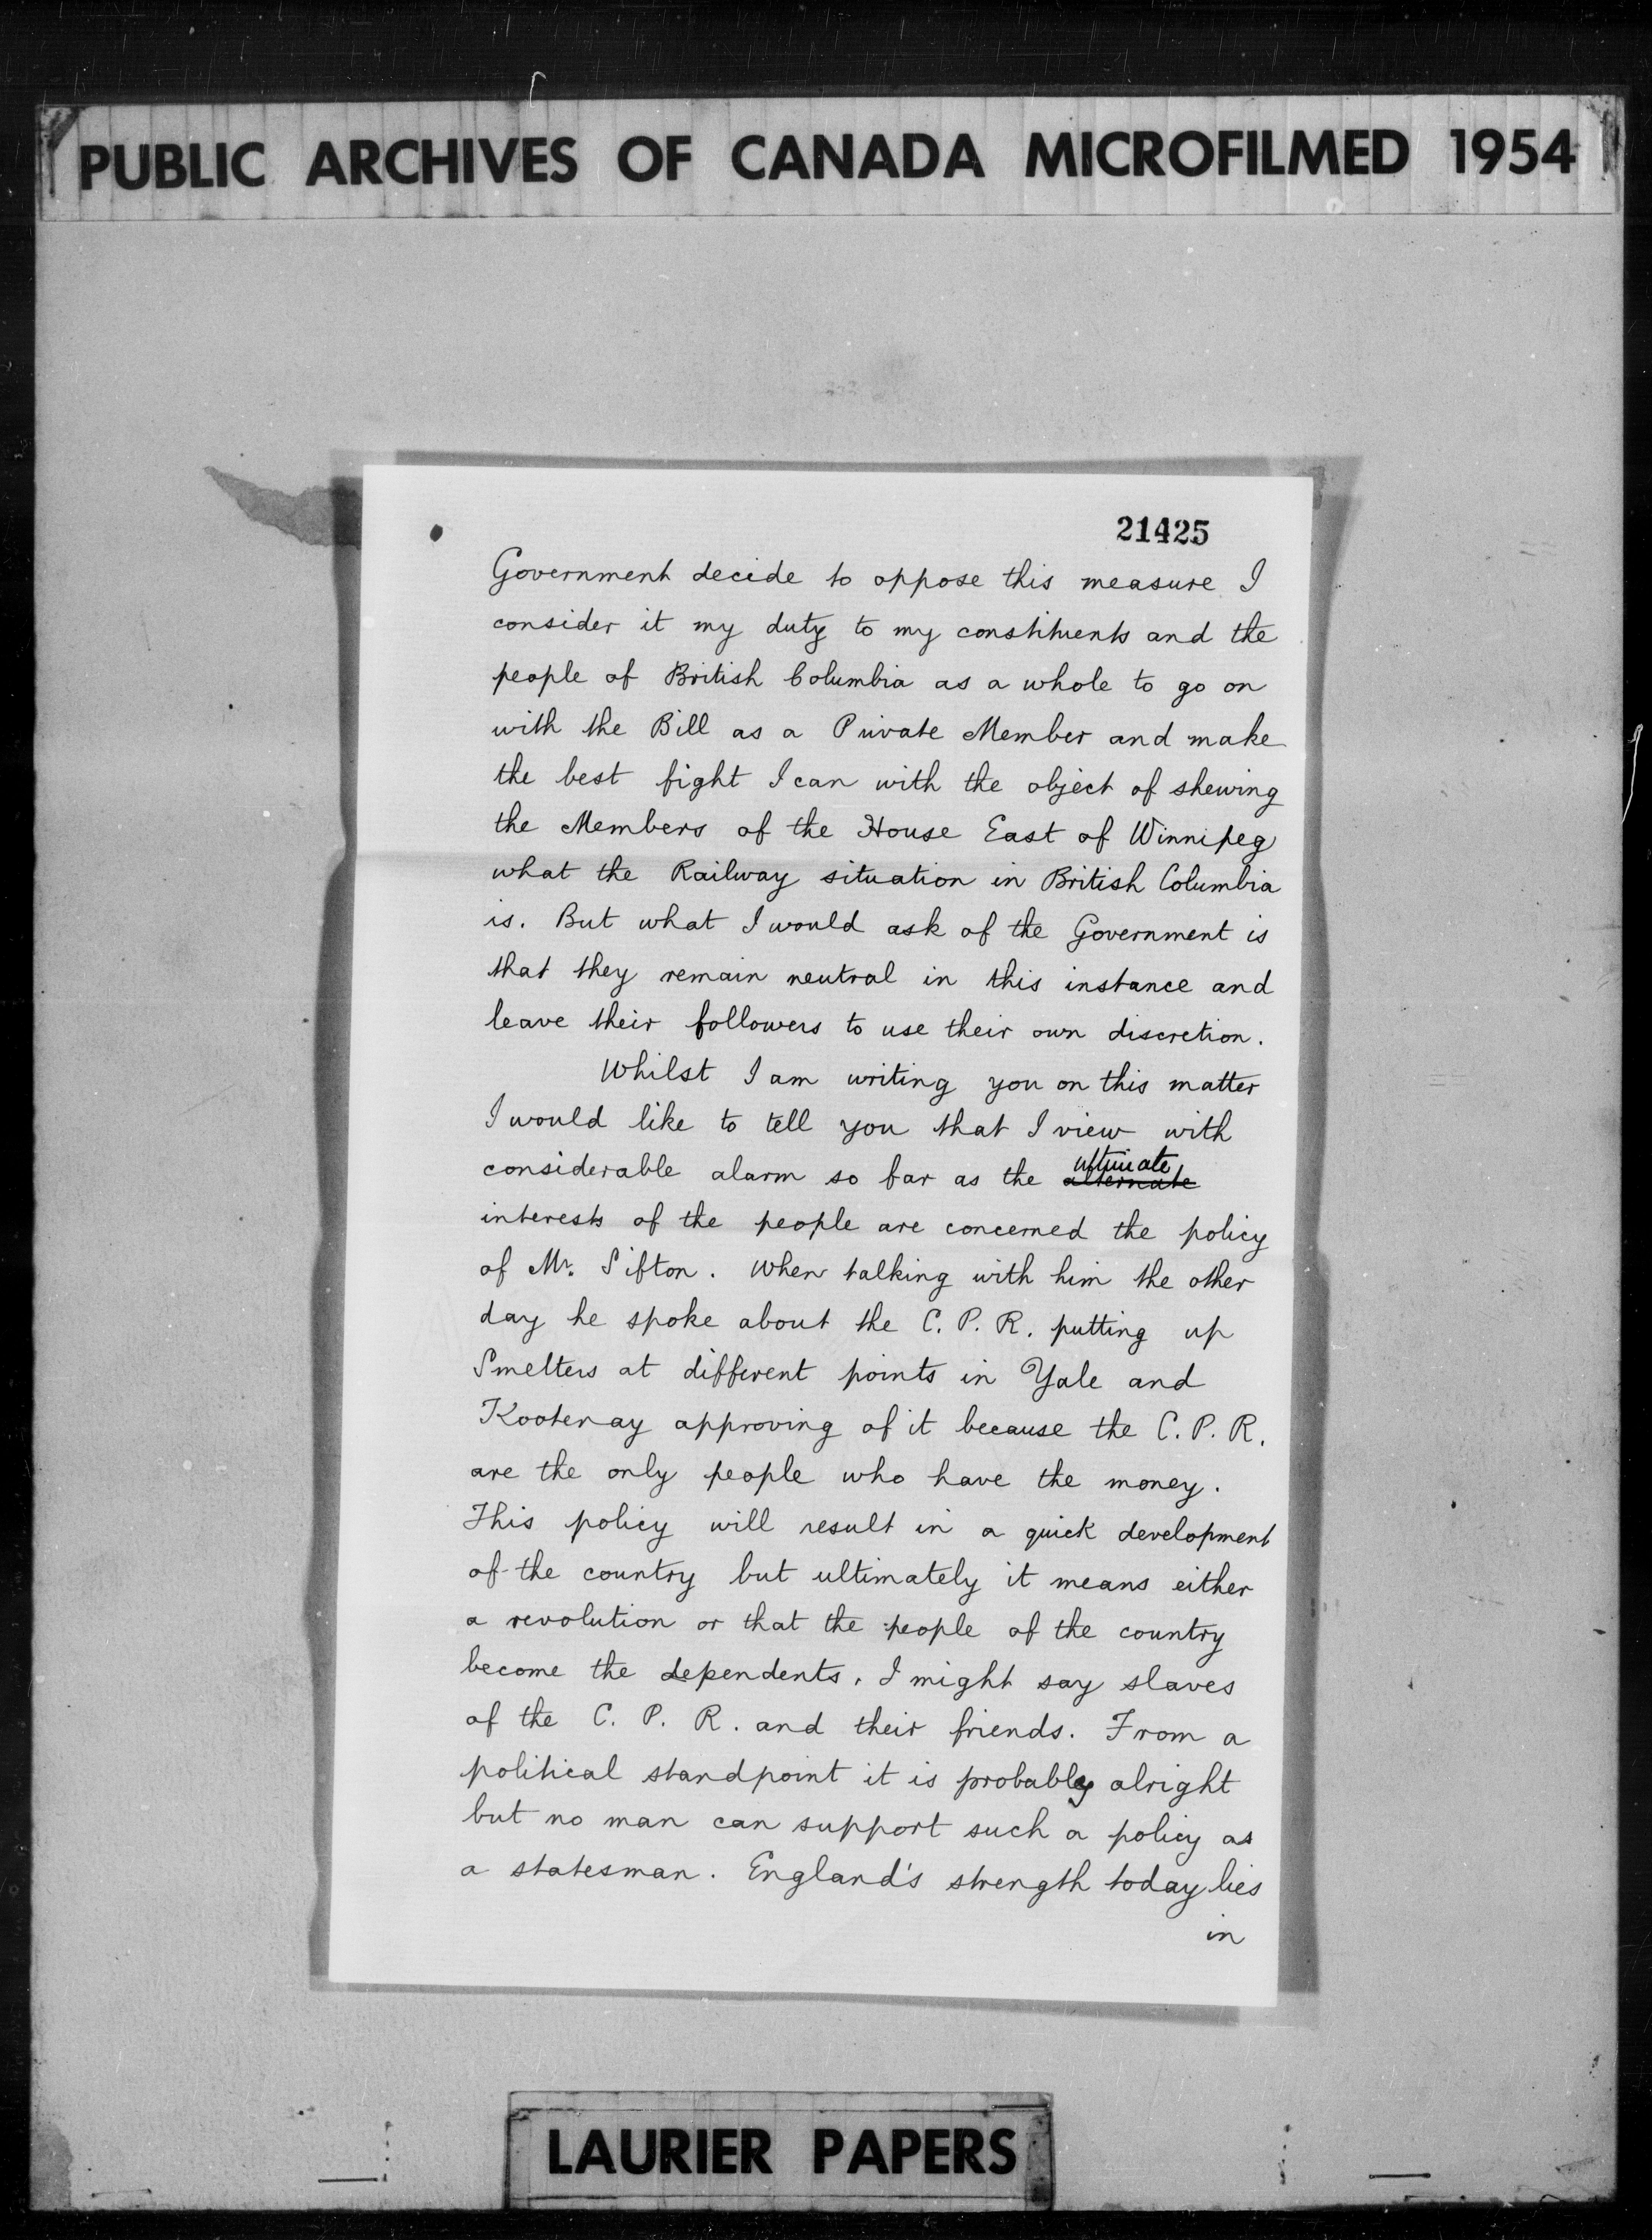 PUBLIC ARCHIVES OF CANADA MICROFILMED 1954
21425
Government decide to oppose this measure I
consider it my duty to my constituents and the
people of British Columbia as a whole to go on
with the Bill as a Private Member and make
the best fight I can with the object of shewing
the Members of the House East of Winnipeg
what the Railway situation in British Columbia
is. But what I would ask of the Government is
that they remain neutral in this instance and
leave their followers to use their own discretion.
Whilst I am writing you on this matter
I would like to tell you that I view with
ultimate
considerable alarm so far as the alternate
interests of the people are concerned the policy
of Mr. Sifton. When talking with him the other
day he spoke about the C. P. R. putting up
Smelters at different points in Yale and
Kootenay approving of it because the C. P. R.
are the only people who have the money.
This policy will result in a quick development
of the country but ultimately it means either
a revolution or that the people of the country
become the dependents, I might say slaves
of the C. P. R. and their friends. From a
political standpoint it is probably alright
but no man can support such a policy as
a statesman. England's strength today lies
in
LAURIER PAPERS